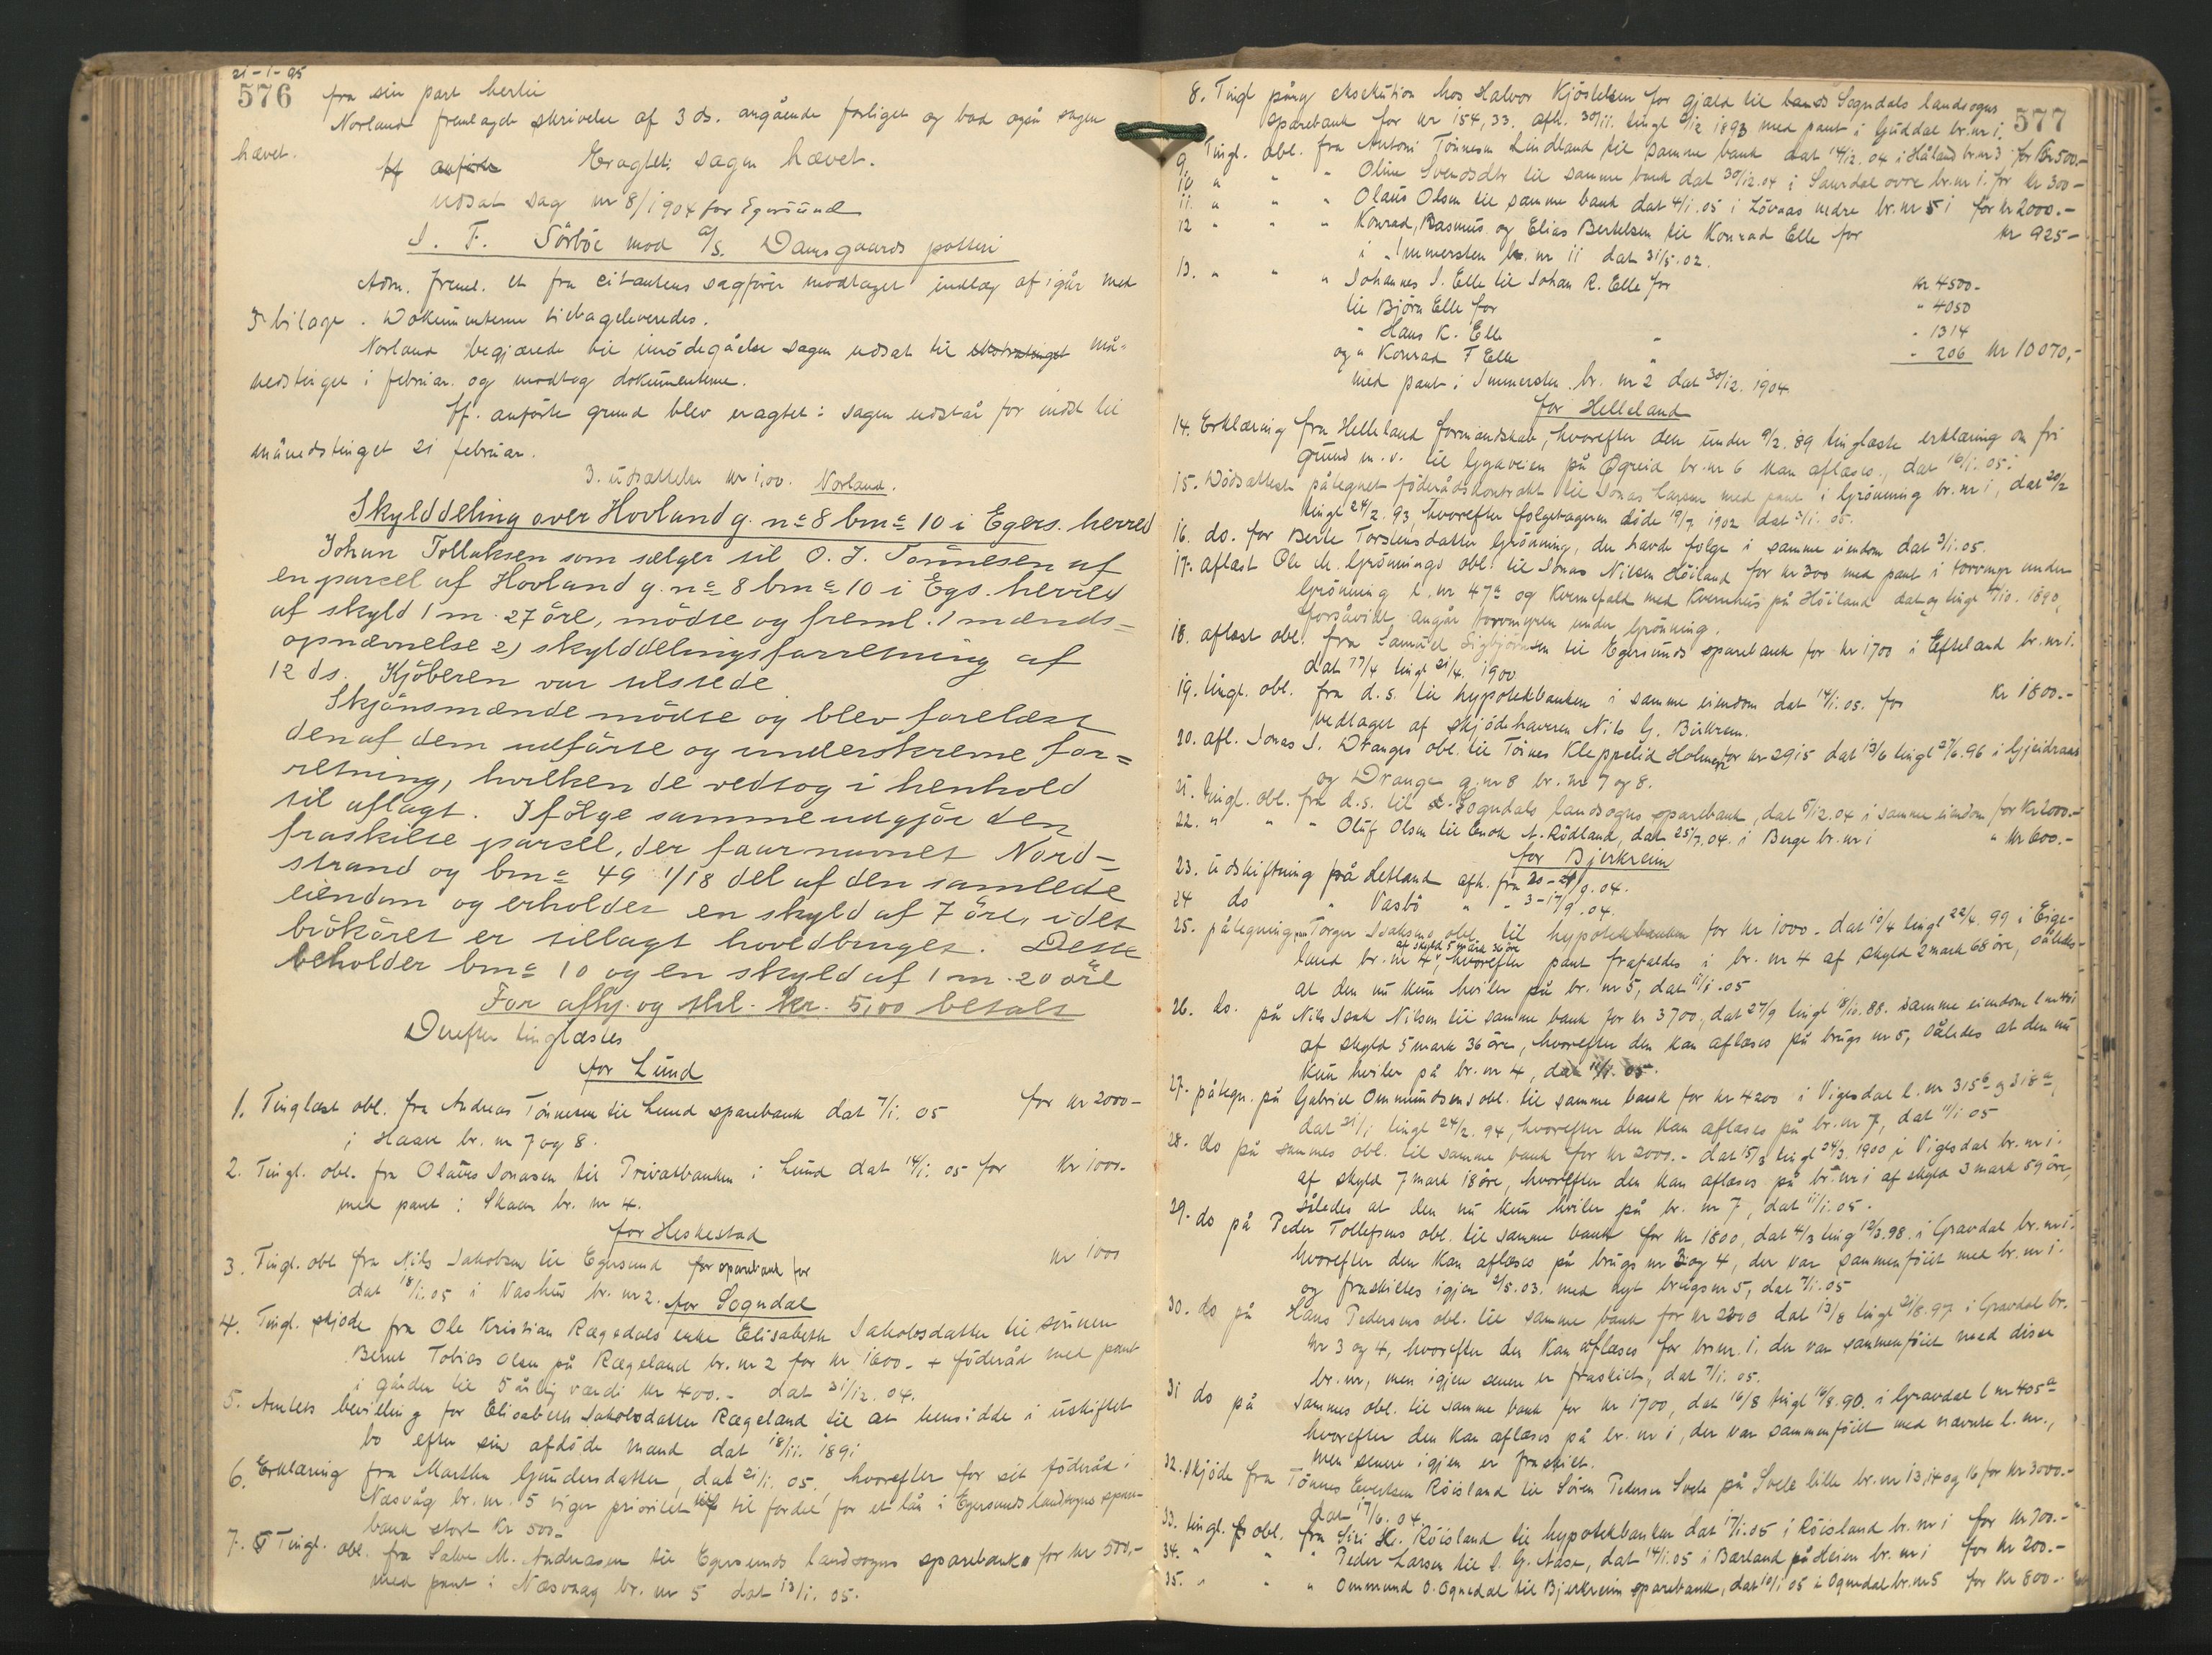 21-1-05
576
fra sin part hertil
Norland fremlagde skrivelse af 3 ds. angående forliget og bad også sagen
hævet.
Eragtet: sagen hævet.
udsat sag nr 8/1904 for Egersund
S. F. Sörböe mod A/S. Damsgaards potteri
Adm. freml. et fra citantens sagförer modtaget indlæg af igår med
5 bilage. Dokumenterne tilbageleveredes.
Norland begjærede til imödegåelse sagen udsat til må-
nedstinget i februar og modtog dokumenterne.
Iflg. anförte grund blev eragtet: sagen udstår for indst til
månedstinget 21 februar.
3. udsættelse kr 1,00. Norland.
Skylddeling over Hovland g. no 8 bno 10 i Egers. herred
Johan Tollaksen som sælger til O. J. Tönnesen af
en parcel af Hovland g. no 8 bno 10 i Egs. herred
af skyld 1 m. 27 öre, mödte og freml. 1 mænds-
opnævnelse 2) skylddelingsforretning af
12 ds. Kjöberen var tilstede
Skjönsmænde mödte og blev forelæst
den af dem udförte og underskrevne for-
retning, hvilken de vedtog i henhold
til aflagt. Ifölge samme udgjör den
fraskilte parcel, der faar navnet Nord-
strand og bno 49 1/18 del af den samlede
eiendom og erholder en skyld af 7 öre, idet
brököret er tillagt hovedbruget. Dette
beholder bno 10 og en skyld af 1 m. 20 öre
For afhj. og thl. kr. 5,00 betalt
Derefter tinglæstes
for Lund
1. Tinglæst obl. fra Andreas Tönnesen til Lund sparebank dat 7/1. 05 for kr 2000-
i Haaer br. nr 7 og 8.
2. Tingl. obl. fra Olaus Jonasen til Privatbanken i Lund dat 14/1. 05 for kr 1000-
med pant i Skaar br. nr 4.
for Heskestad
3. Tingl. obl fra Nils Jakobsen til Egersund sparebank for kr 1000
dat 18/1. 05 i Vashus br. nr 2.
for Sogndal
4. Tingl. skjöde fra Ole Kristian Rægedals enke Elisabeth Jakobsdatter til sönnen
Bernt Tobias Olsen på Rægeland br. nr 2 for kr. 1600- + föderåd med pant
i gården til 5 årlig værdi kr 400.- dat 31/12. 04.
5. Amtets bevilling for Elisabeth Jakobsdatter Rægeland til at hensidde i uskiftet
bo efter sin afdöde mand dat 18/11. 1891
6. Erklæring fra Martha Gundersdatter, dat 21/1. 05, hvorefter for sit föderåd i
Næsvåg br. nr. 5 viger prioritet til fordel for et lån i Egersunds landsogns spare-
bank stort kr 500-
7. Tingl. obl. fra Salve M. Andreasen til Egersunds landsogns sparebank for kr 500,-
med pant i Næsvaag br. nr 5 dat 13/1. 05.
577
8. Tingl påny eksekution hos Halvor Kjöstelsen for gjæld til Sogndals landsogns
sparebank for kr 154,33. afh. 30/11. tingl 2/12 1893 med pant i Guddal br. nr 1.
9. Tingl. obl. fra Antoni Tönnesen Lindland til samme bank dat 14/12. 04 i Håland br. nr 3 for kr 500.-
10 " " " Oline Svendsdtr til samme bank dat 30/12. 04 i Saurdal övre br. nr 1. for kr 300-
11. " " " Olaus Olsen til samme bank dat 4/1. 05 i Lövaas nedre br. nr 51 for kr 2000.-
12 " " " Konrad, Rasmus og Elias Bertelsen til Konrad Elle for kr 925-
i Immersten br. nr 11 dat 31/5. 02.
13. " " " Johannes J. Elle til Johan R. Elle for kr 4500-
til Björn Elle for " 4050
" Hans K. Elle " " 1314
og " Konrad T Elle " " 206 kr 10070,-
med pant i Immersten br. nr 2 dat 30/12. 1904
for Helleland
14. Erklæring fra Helleland formandskab, hvorefter den under 9/2. 89 tinglæste erklæring om fri
grund m. v. til bygaveien på Øgreid br. nr 6 kan aflæses, dat 16/1. 05.
15. Dödsattest påtegnet föderådskontrakt til Jonas Larsen med pant i Grönning br. nr 1, dat 20/2
tingl 24/2. 93, hvorefter folgetageren döde 19/7 1902 dat 2/1. 05.
16. do. for Berte Torstensdatter Grönning, der havde folge i samme eiendom dat 2/1. 05.
17. aflæst Ole M. Grönnings obl. til Jonas Nilsen Höiland for kr 300 med pant i torvmyr under
Grönning l. nr 47a og Kvernefald med Kvernhus på Höiland dat og tingl 7/10. 1890,
forsåvidt angår torvmyren under Grönning.
18. aflæst obl. fra Samuel Sigbjörnsen til Egersunds sparebank for kr 1700 i Efteland br. nr 1.
dat 17/4 tingl 21/4. 1900
19. tingl. obl. fra d. s. til hypotekbanken i samme eiendom dat 14/1. 05. for kr 1800.-
vedtaget af skjödehaveren Nils G. Birkrem.
20. afl. Jonas J. Dranges obl. til Tönnes Kleppelid Holmen for kr 2915 dat 13/6 tingl 27/6. 96 i Gjeidraas
og Drange g. nr 8 br. nr 7 og 8.
21. tingl. obl. fra d. s. til Sogndals landsogns sparebank, dat 5/12. 04 i samme eiendom for kr 2000.-
22. " " " Oluf Olsen til Enok A. Rödland, dat 25/7. 04. i Berge br. nr 1 " kr 600.-
for Bjerkreim
23. Udskiftning på Letland afh. fra 20-21/9. 04.
24 do " Vasbö " " 3-17/9. 04.
25. påtegning om Torger Isaksens obl. til hypotekbanken for kr 1000- dat 10/4 tingl 22/4. 99 i Eige-
land br. nr 4 af skyld 5 mark 36 öre, hvorefter pant frafaldes i br. nr 4 af skyld 2 mark 68 öre, således
at den nu kun hviler på br. nr 5, dat 11/1. 05
26. do. på Nils Isak Nilsen til samme bank for kr 3700, dat 27/9 tingl 18/10. 88. samme eiendom l nr 431
af skyld 5 mark 36 öre, hvorefter den kan aflæses på brugs nr 5, således at den nu
kun hviler på br. nr 4, dat 11/1. 05.
27. påtegn. på Gabriel Ommundsens obl. til samme bank for kr 4200 i Vigesdal l. nr 315b og 318a,
dat 31/1 tingl 24/2. 94, hvorefter den kan aflæses på br. nr 7, dat 11/1 05
28. do på sammes obl. til samme bank for kr 2000.- dat 15/3 tingl 24/3. 1900 i Vigesdal br. nr 1.
af skyld 7 mark 18 öre, hvorefter den kan aflæses på br. nr 1 af skyld 3 mark 59 öre,
således at den nu kun hviler på br. nr 7, dat 11/1. 05.
29. do på Peder Tollefsens obl. til samme bank for kr 1800, dat 4/3 tingl 12/3. 98. i Gravdal br. nr 1.
hvorefter den kan aflæses på brugs nr 3 og 4, der var sammenföiet med br. nr 1.
og fraskiltes igjen 2/5. 03. med nyt brugsnr 5, dat 7/1. 05
30. do på Hans Pedersens obl. til samme bank for kr 2200 dat 13/8 tingl 21/8. 97 i Gravdal br.
nr 3 og 4, hvorefter den kan aflæses for br. nr. 1. der var sammenföiet med disse
br. nr, men igjen senere er fraskilt, dat 7/1. 05.
31 do på sammes obl. til samme bank for kr 1700, dat 16/8 tingl 16/8. 90. i Gravdal l nr 405a
hvorefter den kan aflæses på br. nr 1, der var sammenföiet med nævnte l. nr.,
men senere igjen er fraskilt.
32. Skjöde fra Tönnes Evertsen Röisland til Sören Pedersen Svele på Svele lille br. nr 13, 14 og 16 for kr 3000.-
dat 17/6. 04.
33. tingl. obl. fra Siri K. Röisland til hypotekbanken dat 17/1. 05 i Röisland br. nr 1 for kr 700.-
34. " " " Peder Larsen til S. G. Aase, dat 14/1. 05 i Bærland på Heien br. nr 1 for kr 200.-
35. " " " Ommund O. Ognedal til Bjerkreim sparebank, dat 10/1 05 i Ognedal br. nr 5 for kr 800-